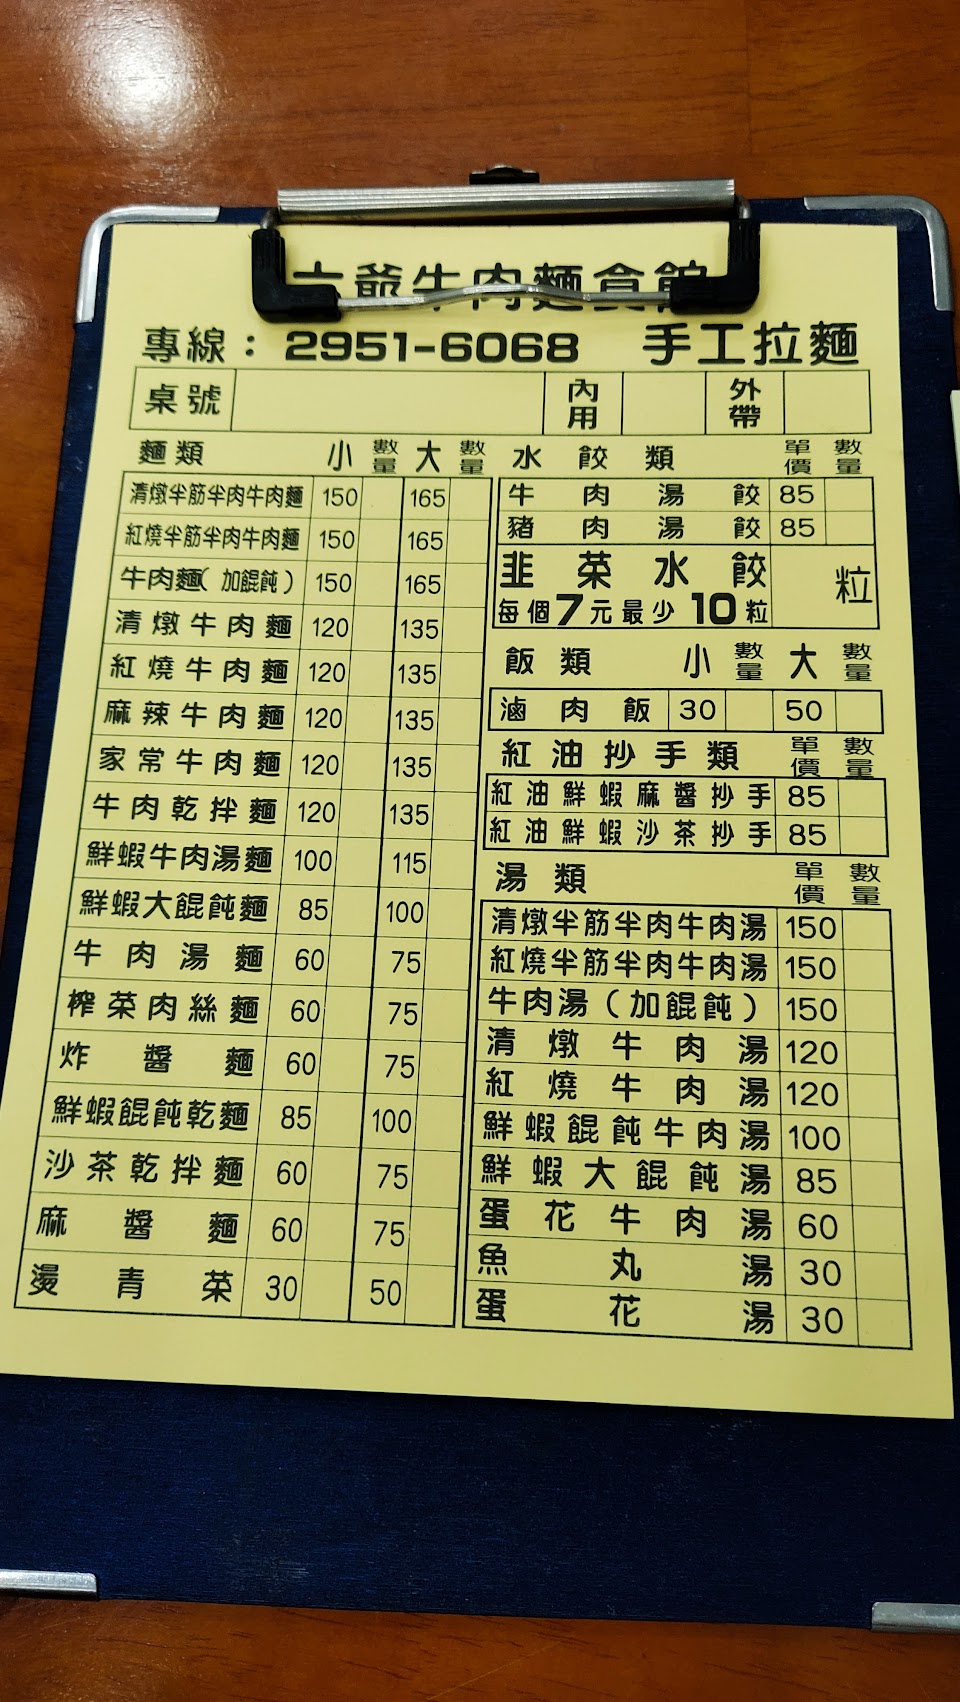 六爺牛肉麵食館
專線：2951-6068 手工拉麵
桌號 內用 外帶
麵類 小 數量 大 數量
清燉半筋半肉牛肉麵 150 165
紅燒半筋半肉牛肉麵 150 165
牛肉麵(加餛飩) 150 165
清燉牛肉麵 120 135
紅燒牛肉麵 120 135
麻辣牛肉麵 120 135
家常牛肉麵 120 135
牛肉乾拌麵 120 135
鮮蝦牛肉湯麵 100 115
鮮蝦大餛飩麵 85 100
牛肉湯麵 60 75
榨菜肉絲麵 60 75
炸醬麵 60 75
鮮蝦餛飩乾麵 85 100
沙茶乾拌麵 60 75
麻醬麵 60 75
燙青菜 30 50
水餃類 單價 數量
牛肉湯餃 85
豬肉湯餃 85
韭菜水餃 粒
每個7元最少10粒
飯類 小 數量 大 數量
滷肉飯 30 50
紅油抄手類 單價 數量
紅油鮮蝦麻醬抄手 85
紅油鮮蝦沙茶抄手 85
湯類 單價 數量
清燉半筋半肉牛肉湯 150
紅燒半筋半肉牛肉湯 150
牛肉湯(加餛飩) 150
清燉牛肉湯 120
紅燒牛肉湯 120
鮮蝦餛飩牛肉湯 100
鮮蝦大餛飩湯 85
蛋花牛肉湯 60
魚丸湯 30
蛋花湯 30